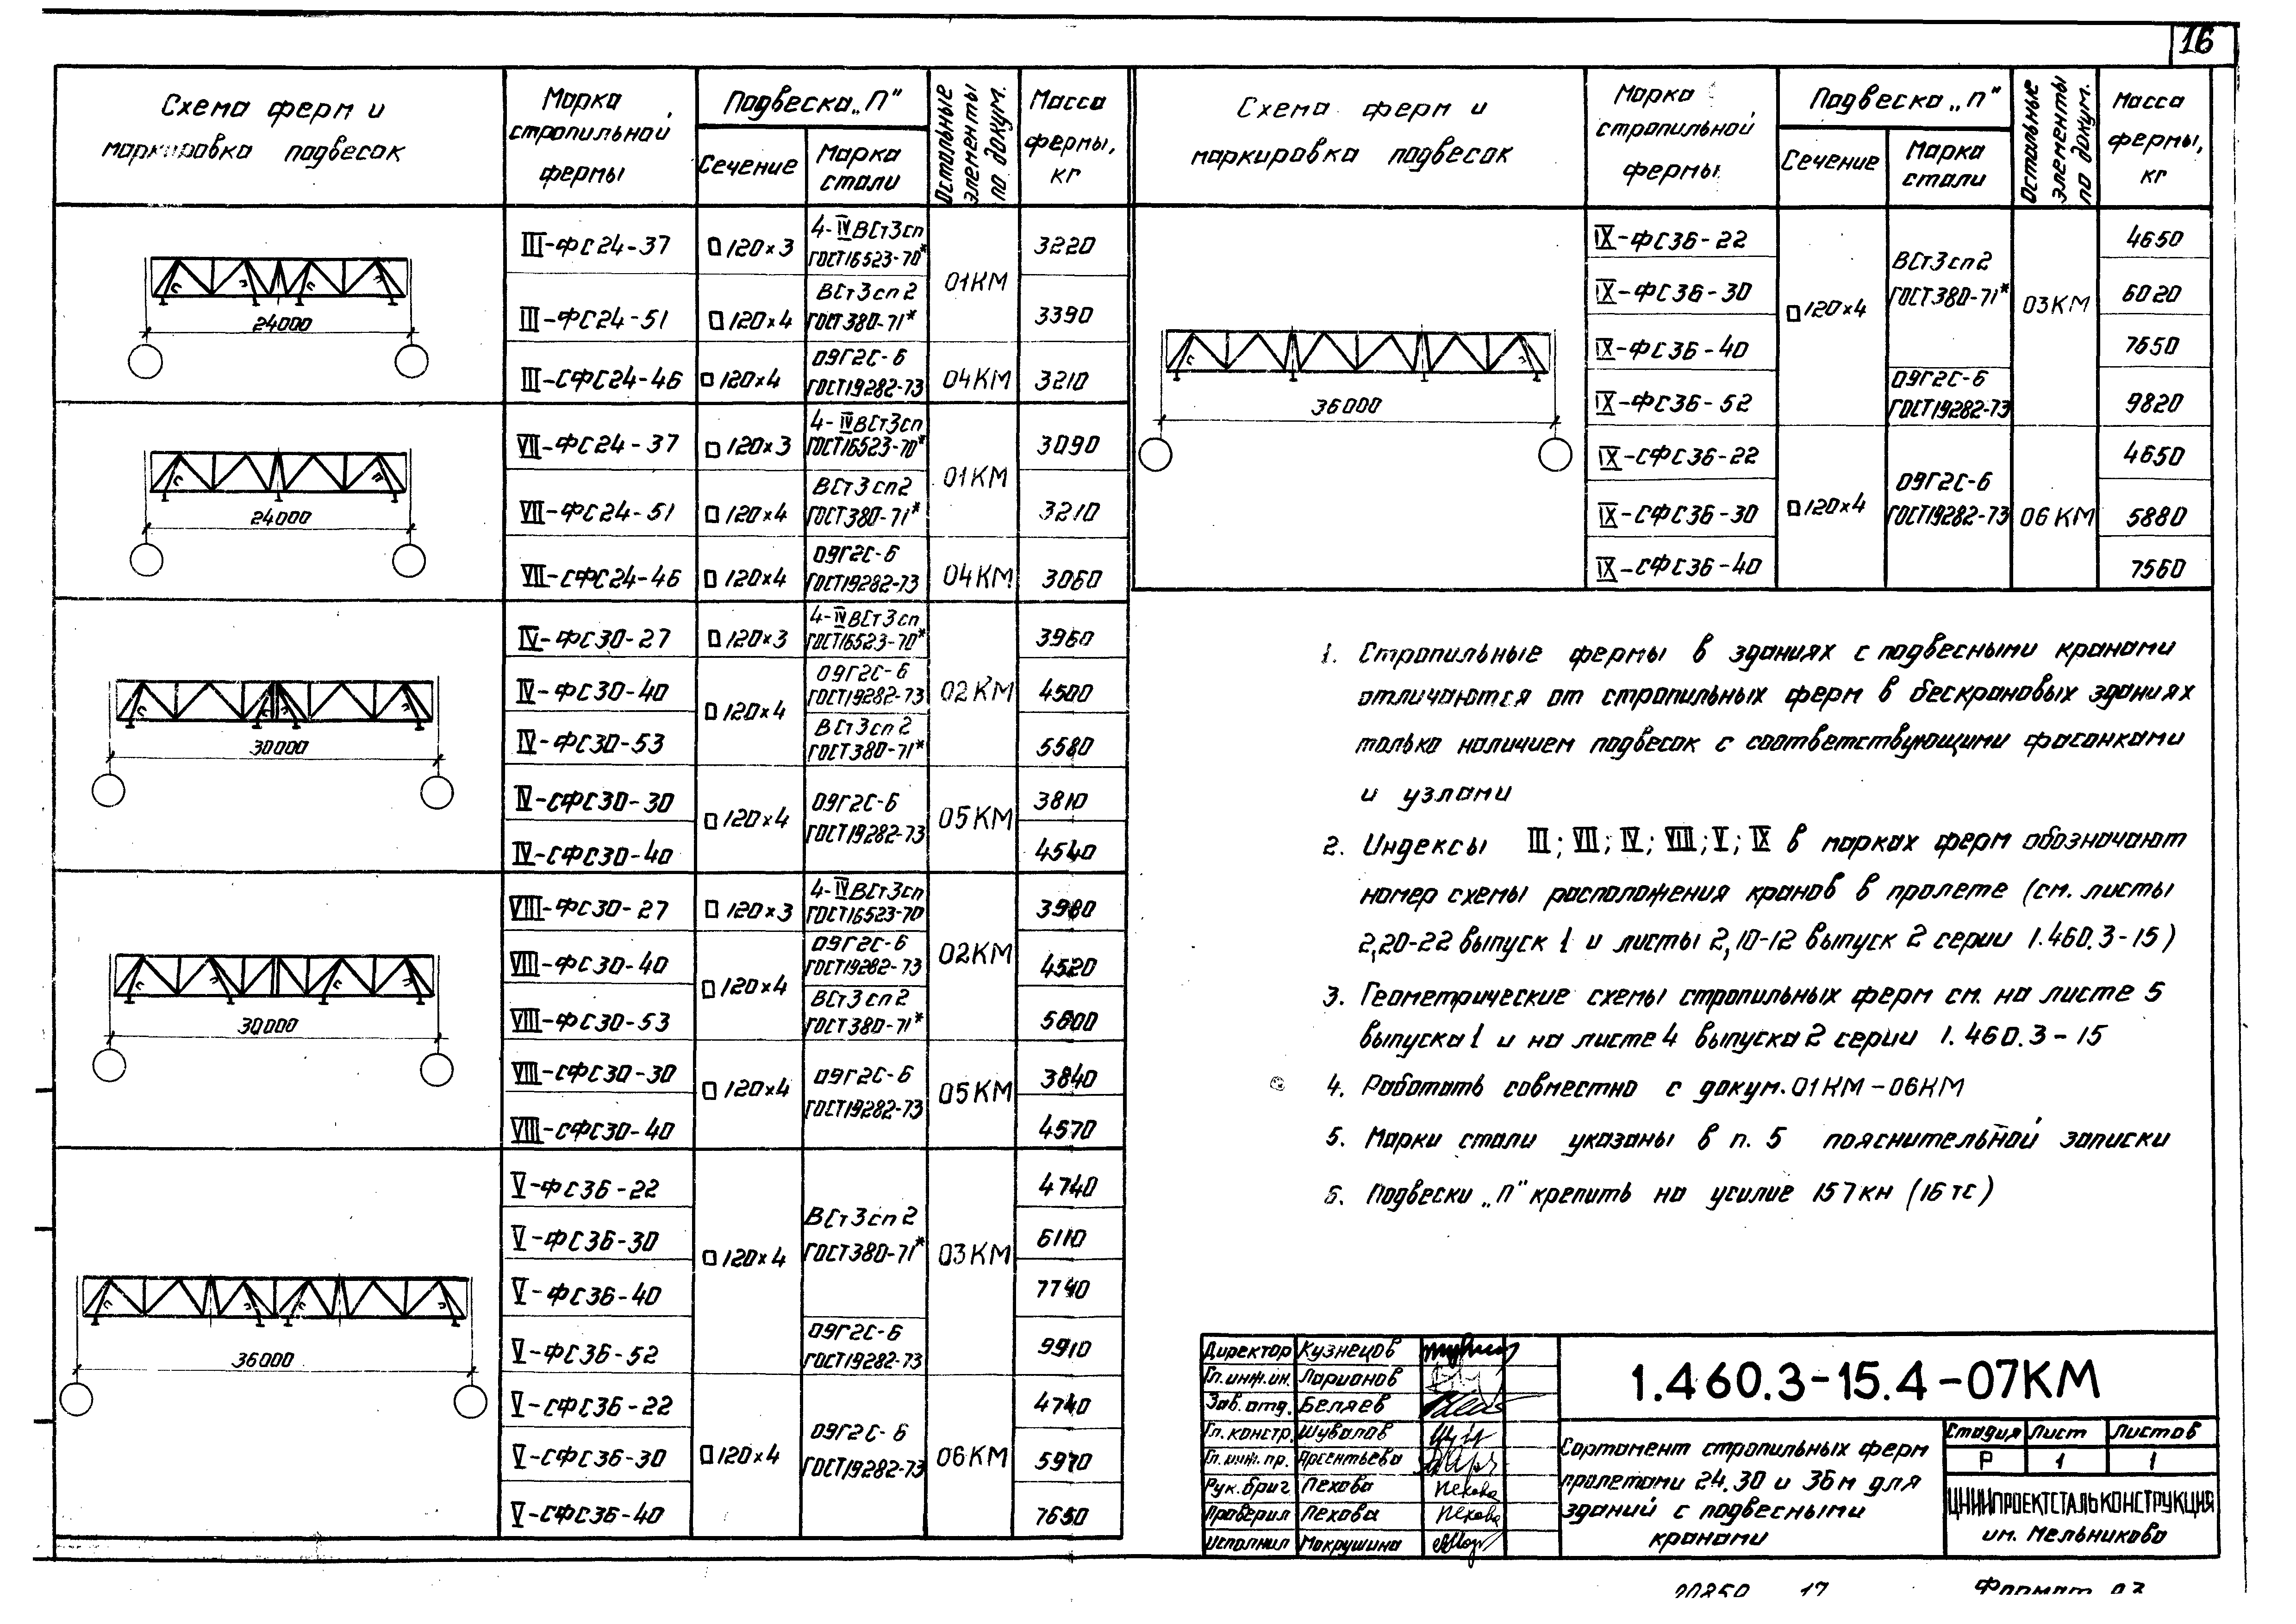 16
Схема ферм и
маркировка подвесок
Марка
стропильной
фермы
Подвеска „П"
Сечение
Марка
стали
Остальные
элементы
по докум.
Масса
фермы,
кг
24000
III-ФС24-37
□120×3
4-IVВСт3сп
ГОСТ16523-70*
01КМ
3220
III-ФС24-51
□120×4
ВСт3сп2
ГОСТ380-71*
3390
III-СФС24-46
□120×4
09Г2С-6
ГОСТ19282-73
04КМ
3210
24000
VII-ФС24-37
□120×3
4-IVВСт3сп
ГОСТ16523-70*
01КМ
3090
VII-ФС24-51
□120×4
ВСт3сп2
ГОСТ380-71*
3210
VII-СФС24-46
□120×4
09Г2С-6
ГОСТ19282-73
04КМ
3060
30000
IV-ФС30-27
□120×3
4-IVВСт3сп
ГОСТ16523-70*
02КМ
3960
IV-ФС30-40
□120×4
09Г2С-6
ГОСТ19282-73
4500
IV-ФС30-53
ВСт3сп2
ГОСТ380-71*
5580
IV-СФС30-30
□120×4
09Г2С-6
ГОСТ19282-73
05КМ
3810
IV-СФС30-40
4540
30000
VIII-ФС30-27
□120×3
4-IVВСт3сп
ГОСТ16523-70
02КМ
3980
VIII-ФС30-40
□120×4
09Г2С-6
ГОСТ19282-73
4520
VIII-ФС30-53
ВСт3сп2
ГОСТ380-71*
5600
VIII-СФС30-30
□120×4
09Г2С-6
ГОСТ19282-73
05КМ
3840
VIII-СФС30-40
4570
36000
V-ФС36-22
□120×4
ВСт3сп2
ГОСТ380-71*
03КМ
4740
V-ФС36-30
6110
V-ФС36-40
7740
V-ФС36-52
09Г2С-6
ГОСТ19282-73
9910
V-СФС36-22
□120×4
09Г2С-6
ГОСТ19282-73
06КМ
4740
V-СФС36-30
5970
V-СФС36-40
7650
Схема ферм и
маркировка подвесок
Марка
стропильной
фермы
Подвеска „П"
Сечение
Марка
стали
Остальные
элементы
по докум.
Масса
фермы,
кг
36000
IX-ФС36-22
□120×4
ВСт3сп2
ГОСТ380-71*
03КМ
4650
IX-ФС36-30
6020
IX-ФС36-40
7650
IX-ФС36-52
09Г2С-6
ГОСТ19282-73
9820
IX-СФС36-22
□120×4
09Г2С-6
ГОСТ19282-73
06КМ
4650
IX-СФС36-30
5880
IX-СФС36-40
7560
1. Стропильные фермы в зданиях с подвесными кранами
отличаются от стропильных ферм в бескрановых зданиях
только наличием подвесок с соответствующими фасонками
и узлами
2. Индексы III; VII; IV; VIII; V; IX в марках ферм обозначают
номер схемы расположения кранов в пролете (см. листы
2,20-22 выпуск 1 и листы 2,10-12 выпуск 2 серии 1.460.3-15)
3. Геометрические схемы стропильных ферм см. на листе 5
выпуска 1 и на листе 4 выпуска 2 серии 1.460.3-15
4. Работать совместно с докум. 01КМ-06КМ
5. Марки стали указаны в п. 5 пояснительной записки
6. Подвески „П" крепить на усилие 157кн (16тс)
Директор Кузнецов
Гл. инж. ин. Ларионов
Зав. отд. Беляев
Гл. констр. Шувалов
Гл. инж. пр. Арсентьева
Рук. бриг Пехова Пехова
Проверил Пехова Пехова
Исполнил Мокрушина
1.460.3-15.4-07КМ
Сортамент стропильных ферм
пролетами 24,30 и 36м для
зданий с подвесными
кранами
Стадия Лист Листов
Р 1 1
ЦНИИПРОЕКТСТАЛЬКОНСТРУКЦИЯ
им. Мельникова
17
Формат